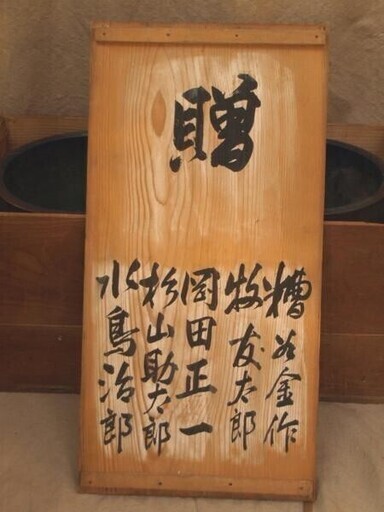 贈
糟谷金作
牧友太郎
岡田正一
杉山助太郎
水鳥治郎